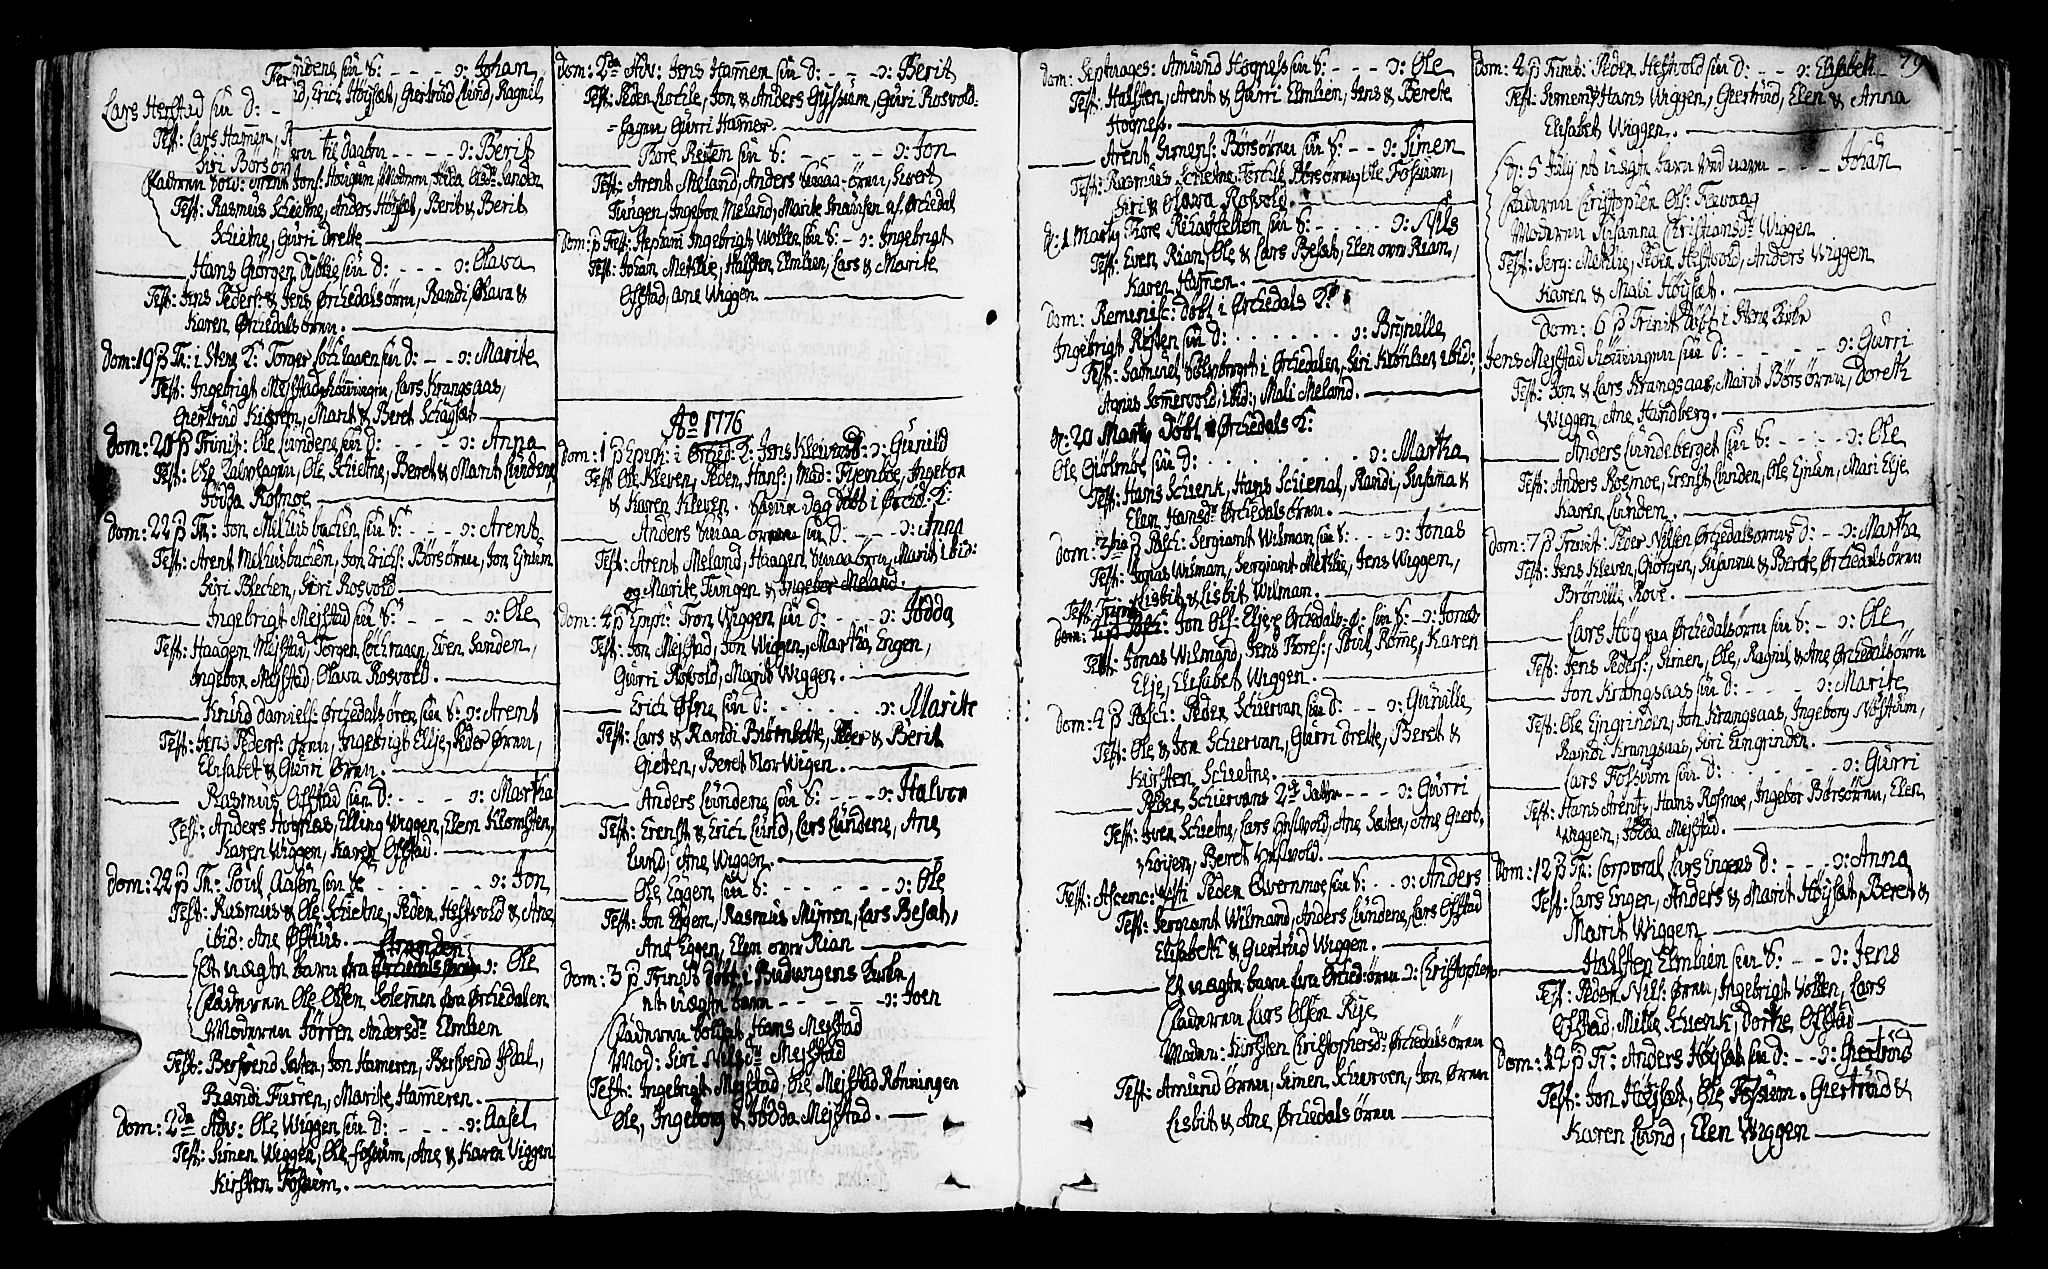 Lars Herstad sin D: -
Test: Lars Hamen,
Siri Børsør
Lundene sin S: - - - ɔ: Johan
Erici Höysæt, Giertrud Lund, Ragnil
til daabn - - - - ɔ: Berit
Faderen Sold: Arent Jons: Hougum, Moderen, Jödda Olsdr Sanden
Test: Rasmus Schietne, Anders Höysæt, Berit & Berit
Schietne, Guri Drette
Hans Giörgen Dyblie sin D: - - - ɔ: Olava
Test: Jens Peders: & Jens Ørchedalsøren, Randi, Olava &
Karen Ørchedalsøren.
Dom: 19 p Tr: i Stens K: Torger Löchaven sin D: - - ɔ: Marite
Test: Ingebrigt Mejstadrönningen, Lars Krangsaas,
Giertrud Kissen, Marit & Beret Schaysæt
Dom: 20 p Trinit: Ole Lundene sin D: - - - ɔ: Anna
Test: Ole Qalvhagen, Ole Schietne, Beret & Marit Lundene,
Jödda Rosmoe
Dom: 22 p Tr: Jon Melhusbachen sin S: - - - ɔ: Arent
Test: Arent Melhusbachen, Jon Erichs: Börsøren, Jon Ejnum
Siri Blechen, Siri Rosvold
Ingebrigt Mejstad sin S: - - - - ɔ: Ole
Test: Haagen Mejstad, Torger Löchragen, Even Sanden,
Ingebor Mejstad, Olava Rosvold.
Knud Daniels: Ørchedalsøren sin S: ɔ: Arent
Test: Jens Peders: øren, Ingebrigt Elije, Peder Øren,
Elisabet & Gurri Øren.
Rasmus Ofstad sin D: - - - - ɔ: Martha
Test: Anders Hognæs, Elling Wiggen, Elen Klomsten,
Karen Wiggen, Karen Ofstad.
Dom: 22 p Tr: Poul Aasen sin S: - - - - - ɔ: Jon
Test: Rasmus & Ole Schietne, Peder Hestvold & Ane
ibid: Ane Østhus.
Et uægte barn fra Stranden ɔ: Ole
Faderen Ole Olsen Solemen fra Ørchedalen
Moderen Jörren Andersdr Elmlien
Test: Berswend Sæten, Jon Hameren, Berswend Isdal,
Randi Furren, Marite Hameren.
Dom: 2da Adv: Ole Wiggen sin D: - - - - ɔ: Aasel
Test: Simen Wiggen, Ole Fossum, Ane & Karen Viggen
Kirsten Fossem.
Dom: 2da Adv: Jens Hamen sin D: - - - ɔ: Berit
Test: Peder Lochle, Jon & Anders Gyssum, Guri Rosvold-
=hagen, Gurri Hamer.
Tore Reiten sin S: - - - - - ɔ: Jon
Test: Arent Meland, Anders Svaa-ören, Sivert
Tungen, Ingebor Meland, Marite Snausen af Ørchedal
Dom: p Fest: Stephani Ingebrigt Wollen sin S: - ɔ: Ingebrigt
Test: Johan Methlie, Halsten Elmlien, Lars & Marite
Ofstad, Ane Wiggen
Ao 1776
Dom: 1 p Epiph: i Örched. K: Jens Klevend: ɔ: Gunild
Test Ole Kleven, Peder, Hans:, Mad: Tyenboe, Ingebor
& Karen Kleven. Samme Dag Döbt i Örched. K:
Anders Svaa ørenn sin D: - - - ɔ: Anna
Test: Arent Meland, Haagen Svaaørn, Marit ibid:
og Marite Tungen & Ingebor Meland.
Dom: 4 p Epiph: Tron Wiggen sin D: - - - ɔ: Jödda
Test: Jon Mejstad, Jon Wiggen, Martha Engen,
Gurri Rosvold, Marit Wiggen.
Erich Ølne sin D: - - - - - ɔ: Marite
Test: Lars & Randi Biörnbette, Peder & Berit
Gieten, Beret Nor Wigen.
Anders Lundene sin S: - - - ɔ: Halvor
Test: Ernst & Erich Lund, Lars Lundene, Ane
Lund, Ane Wiggen.
Ole Eggen sin S: - - - - - ɔ: Ole
Test: Jon Eggen, Rasmus Myren, Lars Besæt,
Ane Eggen, Elen over Rian
Dom: 3 p Trinit döbt i Budvigens Kirke
et uægte barn - - - - - ɔ: Joen
Faderen Soldat Hans Mejstad
Mod: Siri Nilsdr Mejstad
Test: Ingebrigt Mejstad, Ole Mejstad Rönningen
Ole, Ingeborg & Jödda Mejstad.
Dom: Septuages: Amund Hogness sin S: - - - ɔ: Ole
Test: Halsten, Arent & Gurri Elmlien, Jens & Berete
Hogness.
Arent Simens: Börsøren sin S: - - ɔ: Simen
Test: Rasmus Schietne, Torchel Börsøren, Ole Fossum,
Siri & Olava Rosvold.
d: 1 Marty Tore Richardsten sin S: - - - - ɔ: Nils
Test: Even Rian, Ole & Lars Besæt, Elen over Rian,
Karen Hamen.
Dom: Reminisc: döbt i Ørchedals K:
Ingebrigt Resten sin D: . . . . . . ɔ: Brynille
Test: Samuel Solsberget i Ørchedalen, Siri Krohlien ibid:,
Agnis Somervold, ibid:, Mali Meland.
d: 20 Marty Döbt i Ørchedals K:
Ole Giölmoe sin D: . . . . . . . . ɔ: Martha
Test: Hans Schenk, Hans Schienal, Randi, Susanna &
Elen Hansdr Ørchedalsøren.
Dom: 3tia p Pasch: Sergiant Wilman sin S: - - - ɔ: Jonas
Test: Jonas Wilman, Sergiant Methlie, Jens Wiggen,
Lisbit & Lisbit Wilman.
Jon Ols: Elje Ørchedals-ø: sin S: - ɔ: Jonas
Test: Jonas Wilmand, Jens Tores:, Poul Rome, Karen
Elje, Elisabet Wiggen.
Dom: 4 p Pasch: Peder Schiervan sin D: - - ɔ: Gunille
Test: Ole & Jon Schiervan, Gurri Drette, Beret &
Kirsten Schietne.
Peder Schiervans 2det dattr - - - ɔ: Gurri
Test: Iver Schietne, Lars Hyslvold, Ane Sæten, Ane Giert,
Beret Hyslvold.
Fest: Ascenc: Peder Qvernmoe sin S: - - ɔ: Anders
Test: Sergiant Wilmand, Anders Lundene, Lars Ofstad
Elisabeth & Giertrud Wiggen.
Et uægte barn fra Ørched:øren ɔ: Christopher
Faderen Lars Olsen Rije
Moder: Kirsten Christophersdr Ørchedalsøren
Test: Amund Øren, Simen Schierven, Jon Øren
Lisbit & Ane Ørchedalsøren
79
Dom: 4 p Trinit: Peder Hestvold sin D: - - ɔ: Elisabeth
Test: Simen & Hans Wiggen, Giertrud, Elen & Anna
Elisabet Wiggen.
d: 5 July et uægte barn ved navn - - - Johan
Faderen Christopher Ols: Trevaag
Moderen Susanna Christiansdr Wiggen
Test: Serg: Methlie, Peder Hestvold, Anders Wiggen
Karen & Mali Höysæt.
Dom: 6 p Trinit Döbt i Stens Kirke
Jens Mejstad Rönningen sin D: - - - - - ɔ: Gurri
Test: Jon & Lars Krangsaas, Marit Börsøren, Doreth
Wiggen, Ane Handberg.
Anders Lundeberget sin S: - - - - ɔ: Ole
Test: Anders Rosmoe, Ernst Lunden, Ole Ejnum, Mari Elje
Karen Lunden.
Dom: 7 p Trinit: Peder Nilsen Ørchedalsørens D: - - ɔ: Martha
Test: Jens Kleven, Giörgen, Susanna & Berete Ørchedalsøren
Brönille Rove.
Lars Hög paa Ørchedalsøren sin S: - ɔ: Ole
Test: Jens Peders:, Simen, Ole, Ragnil & Ane Ørchedalsøren
Jon Krangsaas sin D: - - - - ɔ: Marite
Test: Ole Eingrinden, Jon Krangsaas, Ingeborg Nöstum,
Randi Krangsaas, Siri Eingrinden.
Lars Fossum sin D: - - - - - - ɔ: Gurri
Test: Hans Arent, Hans Rosmoe, Ingebor Börsøren, Elen
Wiggen, Jödda Mejstad.
Dom: 12 p Tr: Corporal Lars Engens D: - - - ɔ: Anna
Test: Lars Engen, Anders & Marit Höysæt, Beret &
Marit Wiggen
Halsten Elmlien sin S: - - - ɔ: Jens
Test: Peder Nils: Øren, Ingebrigt Vollen, Lars
Ofstad, Mille Schenk, Dorthe Ofstad
Dom: 12 p Tr: Anders Höysæt sin D: - - ɔ: Giertrud
Test: Jon Höysæt, Ole Fossum. Giertrud &
Karen Lund, Elen Wiggen